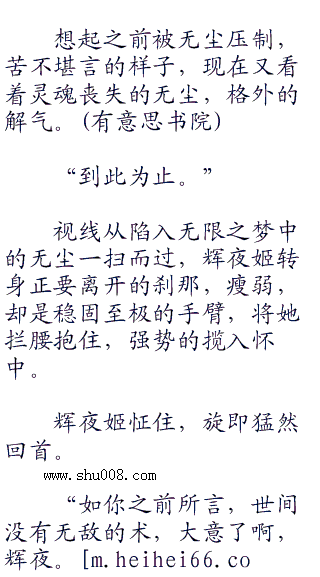 想起之前被无尘压制，
苦不堪言的样子，现在又看
着灵魂丧失的无尘，格外的
解气。(有意思书院)
“到此为止。”
视线从陷入无限之梦中
的无尘一扫而过，辉夜姬转
身正要离开的刹那，瘦弱，
却是稳固至极的手臂，将她
拦腰抱住，强势的揽入怀
中。
辉夜姬怔住，旋即猛然
回首。
www.shu008.com
“如你之前所言，世间
没有无敌的术，大意了啊，
辉夜。[m.heihei66.co